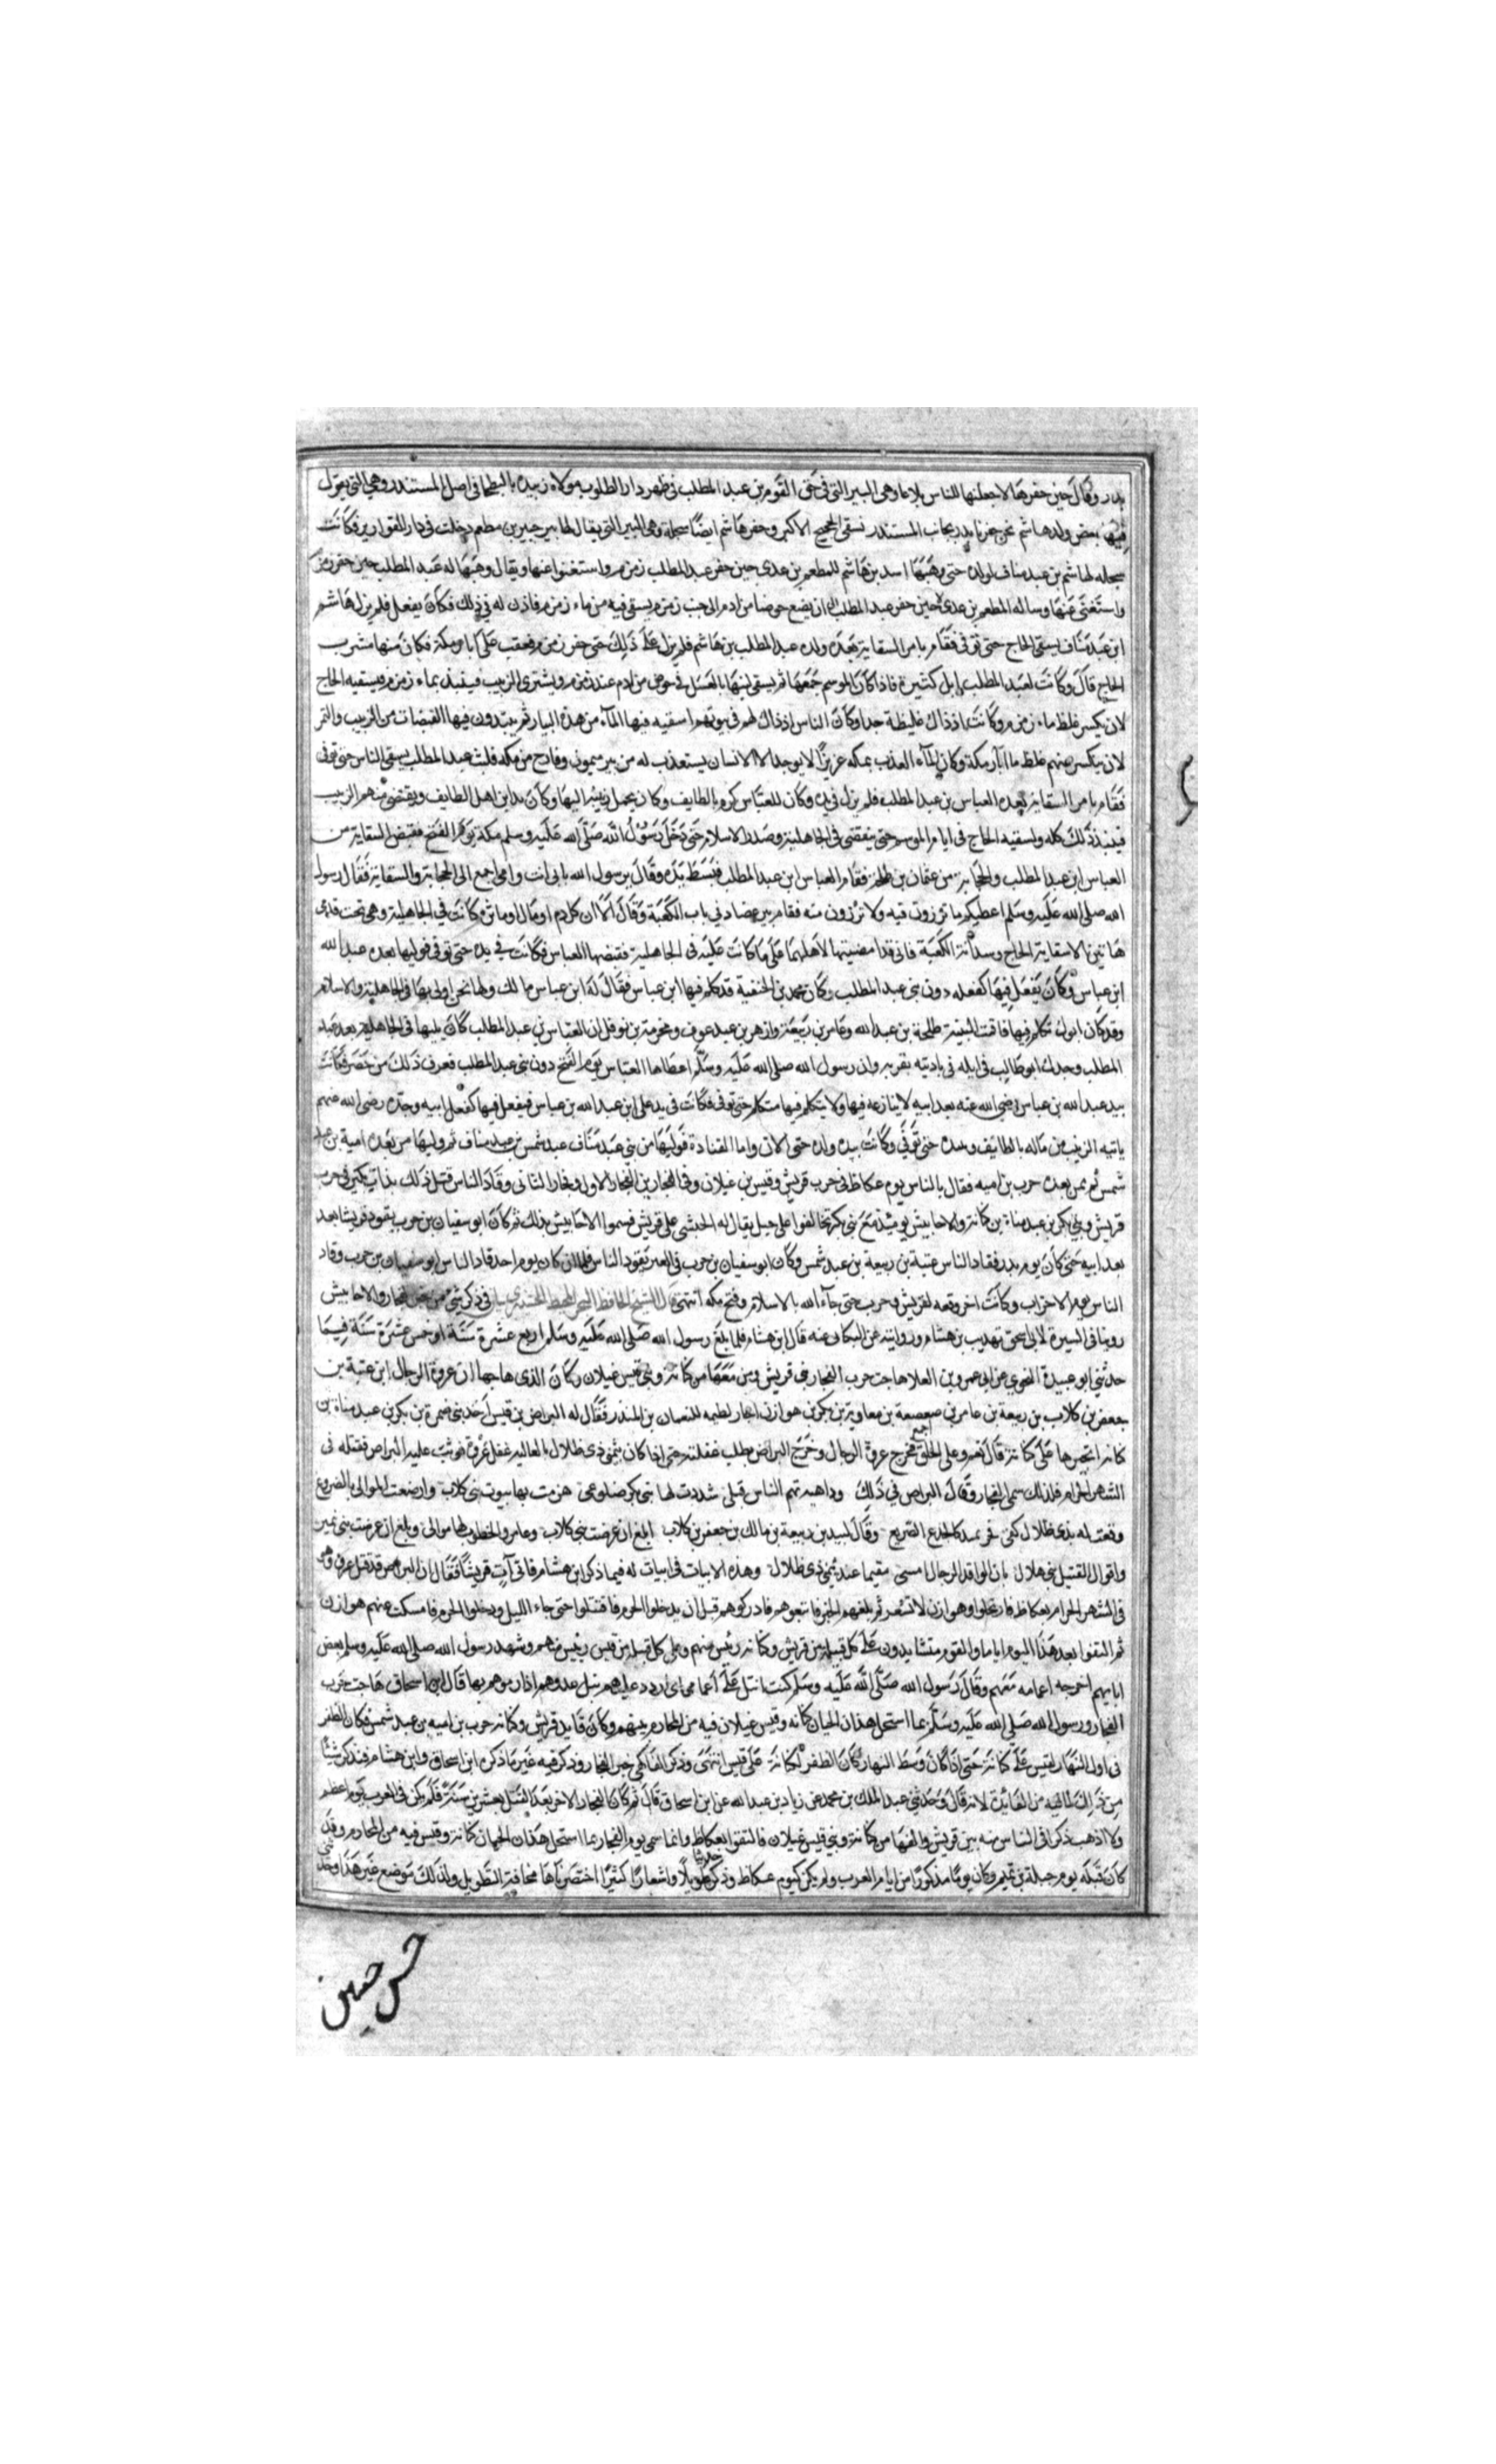 بدر وقال حين حفرها لاجعلنها للناس بلاغا وهي البير التي في حق القوم بن عبد المطلب في ظهر دار الطلوب مولاة زبيدة بالبطحا في اصل المستندر وهي التي يقول
فيها بعض ولد هاشم نحن حفرنا بدر بجانب المستندر نسقي الحجيج الاكبر وحفر هاشم ايضا سجلة وهي البير التي يقال لها بير جبير بن مطعم دخلت في دار القوارير فكانت
سجله لهاشم بن عبد مناف لولده حتى وهبها اسد بن هاشم للمطعم بن عدي حين حفر عبد المطلب زمزم واستغنوا عنها ويقال وهبها له عبد المطلب حين حفر زمزم
واستغنى عنها وساله المطعم بن عدي حين حفر عبد المطلب ان يضع حوضا من ادم الى جنب زمزم يسقي فيه من ماء زمزم فاذن له في ذلك فكان يفعل فلم يزل هاشم
ابن عبد مناف يسقي الحاج حتى توفي فقام بامر السقاية بعده ولده عبد المطلب بن هاشم فلم يزل على ذلك حتى حفر زمزم فعفت على ابار مكة فكان منها مشرب
الحاج قال وكانت لعبد المطلب ابل كثيرة فاذا كان الموسم جمعها ثم يسقي لبنها بالعسل في حوض من ادم عند زمزم ويشتري الزبيب فينبذ بماء زمزم ويسقيه الحاج
لان يكسر غلظ ماء زمزم وكانت اذ ذاك غليظة جدا وكان الناس اذ ذاك لهم في بيوتهم اسقيه فيها الماء من هذه البيار ثم ينبتدون فيها القبضات من الزبيب والتمر
لان يكسر عنهم غلظ ما ابار مكة وكان الماء العذب بمكه عزيزا لا يوجد الا لانسان يستعذب له من بير ميمون وخارج من مكه فلبث عبد المطلب يسقي الناس حتى توفي
فقام بامر السقاية بعده العباس بن عبد المطلب فلم يزل في يده وكان للعباس كرم بالطايف وكان يحمل زبيبه اليها وكان يداين اهل الطايف ويقتضي منهم الزبيب
فينبذ ذلك كله ويسقيه الحاج في ايام الموسم حتى ينقضي في الجاهلية وصدر الاسلام حتى دخل رسول الله صلى الله عليه وسلم مكة يوم الفتح فقبض السقاية من
العباس ابن عبد المطلب والحجابة من عثمان بن طلحة فقام العباس ابن عبد المطلب فبسط يده وقال يرسول الله بابي انت وامي اجمع الى الحجابة والسقاية فقال رسول
الله صلى الله عليه وسلم اعطيكم ما ترزون فيه ولا ترزون منه فقام بين عضادتي باب الكعبة وقال الا ان كل دم او مال او ماثرة كانت في الجاهلية وهي تحت قدمي
هاتين الا سقاية الحاج وسدانة الكعبة فاني قد امضيتها لاهلهما على ما كانت عليه في الجاهلية فقبضها العباس فكانت في يده حتى توفي فوليها بعده عبد الله
ابن عباس وكان يفعل فيها كفعله دون بني عبد المطلب وكان محمد بن الحنفية قد كلم فيها ابن عباس فقال له ابن عباس ما لك ولها نحن اولى بها في الجاهلية والاسلام
وقد كان ابوك تكلم فيها فاقت البينة طلحة بن عبد الله وعامر بن ربيعة وازهر بن عبد عوف ومخرمة بن نوفل ان العباس بن عبد المطلب كان يليها في الجاهلية بعد عبد
المطلب وجدك ابو طالب في ابله في باديته بعرنة وان رسول الله صلى الله عليه وسلم اعطاها العباس يوم الفتح دون بني عبد المطلب فعرف ذلك من حضر فكانت
بيد عبد الله بن عباس رضي الله عنه بعد ابيه لا ينازعه فيها ولا يتكلم فيها متكلم حتى توفي فكانت في يد علي ابن عبد الله بن عباس فيفعل فيها كفعل ابيه وجده رضي الله عنهم
ياتيه الزبيب من ماله بالطايف وينبذه حتى توفي وكانت بيده ولده حتى الان واما القيادة فوليها من بني عبد مناف عبد شمس بن عبد مناف ثم وليها من بعده امية بن عبد
شمس ثم من بعده حرب بن اميه فقال بالناس يوم عكاظ في حرب قريش وقيس بن عيلان وفي الفجارين الفجار الاول وفجار الثاني وقاد الناس قبل ذلك بذات نكيف في حرب
قريش وبني بكر بن عبد مناة بن كنانة والاحابيش يومئذ مع بني بكر تحالفوا على جبل يقال له الحبشي على قريش فسموا الاحابيش بذلك ثم كان ابو سفيان بن حرب يقود قريشا بعد
بعد ابيه حتى كان يوم بدر فقاد الناس عتبة بن ربيعة بن عبد شمس وكان ابو سفيان بن حرب في العير يقود الناس فلما ان كان يوم احد قاد الناس ابو سفيان بن حرب وقاد
الناس يوم الاحزاب وكانت اخر وقعه لقريش وحرب حتى جاء الله بالاسلام وفتح مكه انتهى قال الشيخ الحافظ في ذكر شي من خبر الفجار والاحابيش
روينا في السيرة لابن اسحق تهذيب بن هشام وروايته عن البكائي عنه قال ابن هشام فلما بلغ رسول الله صلى الله عليه وسلم اربع عشرة سنة او خمس عشرة سنة فيما
حدثني ابو عبيدة النحوي عن ابي عمرو بن العلا هاجت حرب الفجار في قريش ومن معها من كنانة وبني قيس عيلان وكان الذي هاجها ان عروة الرحال ابن عتبة بن
جعفر بن كلاب بن ربيعة بن عامر بن صعصعة بن معاوية بن بكر بن هوازن اجار لطيمه للنعمان بن المنذر فقال له البراض بن قيس احد بني ضمرة بن بكر بن عبد مناة بن
كنانه اتجيرها على كنانة قال نعم وعلى الخلق جميع فخرج عروة الرحال وخرج البراض يطلب غفلته حتى اذا كان بتيمن ذي ظلال بالعالية غفل عروة فوثب عليه البراض فقتله في
الشهر الحرام فلذلك سمي الفجار وقال البراض في ذلك وداهية تهم الناس قبلي شددت لها بني بكر ضلوعي هزمت بها بيوت بني كلاب وارضعت الموالي بالضروع
وقال لبيد بن ربيعة بن مالك بن جعفر بن كلاب ابلغ ان عرضت بني كلاب وعامر والخطوب لها موالي وبلغ ان عرضت بني نمير
واخوال القتيل بني هلال بان الوافد الرحال امسى مقيما عند تيمن ذي ظلال وهذه الابيات في ابيات له فيما ذكر ابن هشام قال فاتى آت قريشا فقال ان البراض قد قتل عروة وهم
في الشهر الحرام بعكاظ فارتحلوا وهوازن لا تشعر ثم بلغهم الخبر فاتبعوهم فادركوهم قبل ان يدخلوا الحرم فاقتتلوا حتى جاء الليل ودخلوا الحرم فامسكت عنهم هوازن
ثم التقوا بعد هذا اليوم اياما والقوم متشايدون على كل قبيلة من قريش وكنانة رئيس منهم وعلى كل قبيلة من قيس رئيس منهم وشهد رسول الله صلى الله عليه وسلم بعض
ايامهم اخرجه اعمامه معهم وقال رسول الله صلى الله عليه وسلم كنت انبل على اعمامي اي ارد عليهم نبل عدوهم اذا رموهم بها قال ابن اسحاق هاجت حرب
الفجار ورسول الله صلى الله عليه وسلم بما استحل هذان الحيان كنانه وقيس عيلان فيه من المحارم بينهم وكان قايد قريش وكنانه حرب بن اميه بن عبد شمس فكان الظفر
في اول النهار لقيس على كنانة حتى اذا كان وسط النهار كان الظفر لكنانة على قيس انتهى وذكر الفاكهي خبر الفجار وذكر فيه غير ما ذكره ابن اسحاق وابن هشام فنذكر شيئا
من ذلك لما فيه من الفائدة لانه قال وحدثني عبد الملك بن محمد عن زياد بن عبد الله عن ابن اسحاق قال ثم كان الفجار الاخر بعد الفيل بعشرين سنة فلم يكن في العرب يوم اعظم
ولا اذهب ذكرا في الناس منه بين قريش والفها من كنانة وبني قيس عيلان فالتقوا بعكاظ وانما سمي يوم الفجار بما استحل هذان الحيان كنانة وقيس فيه من المحارم وقد
كان قبله يوم جبلة بن تميم وكان يوما مذكورا من ايام العرب ولم يكن كيوم عكاظ وذكر حديثا طويلا واشعارا كثيرا اختصرناها مخافة التطويل ولذلك موضع غير هذا وحدثني
حسن حسين